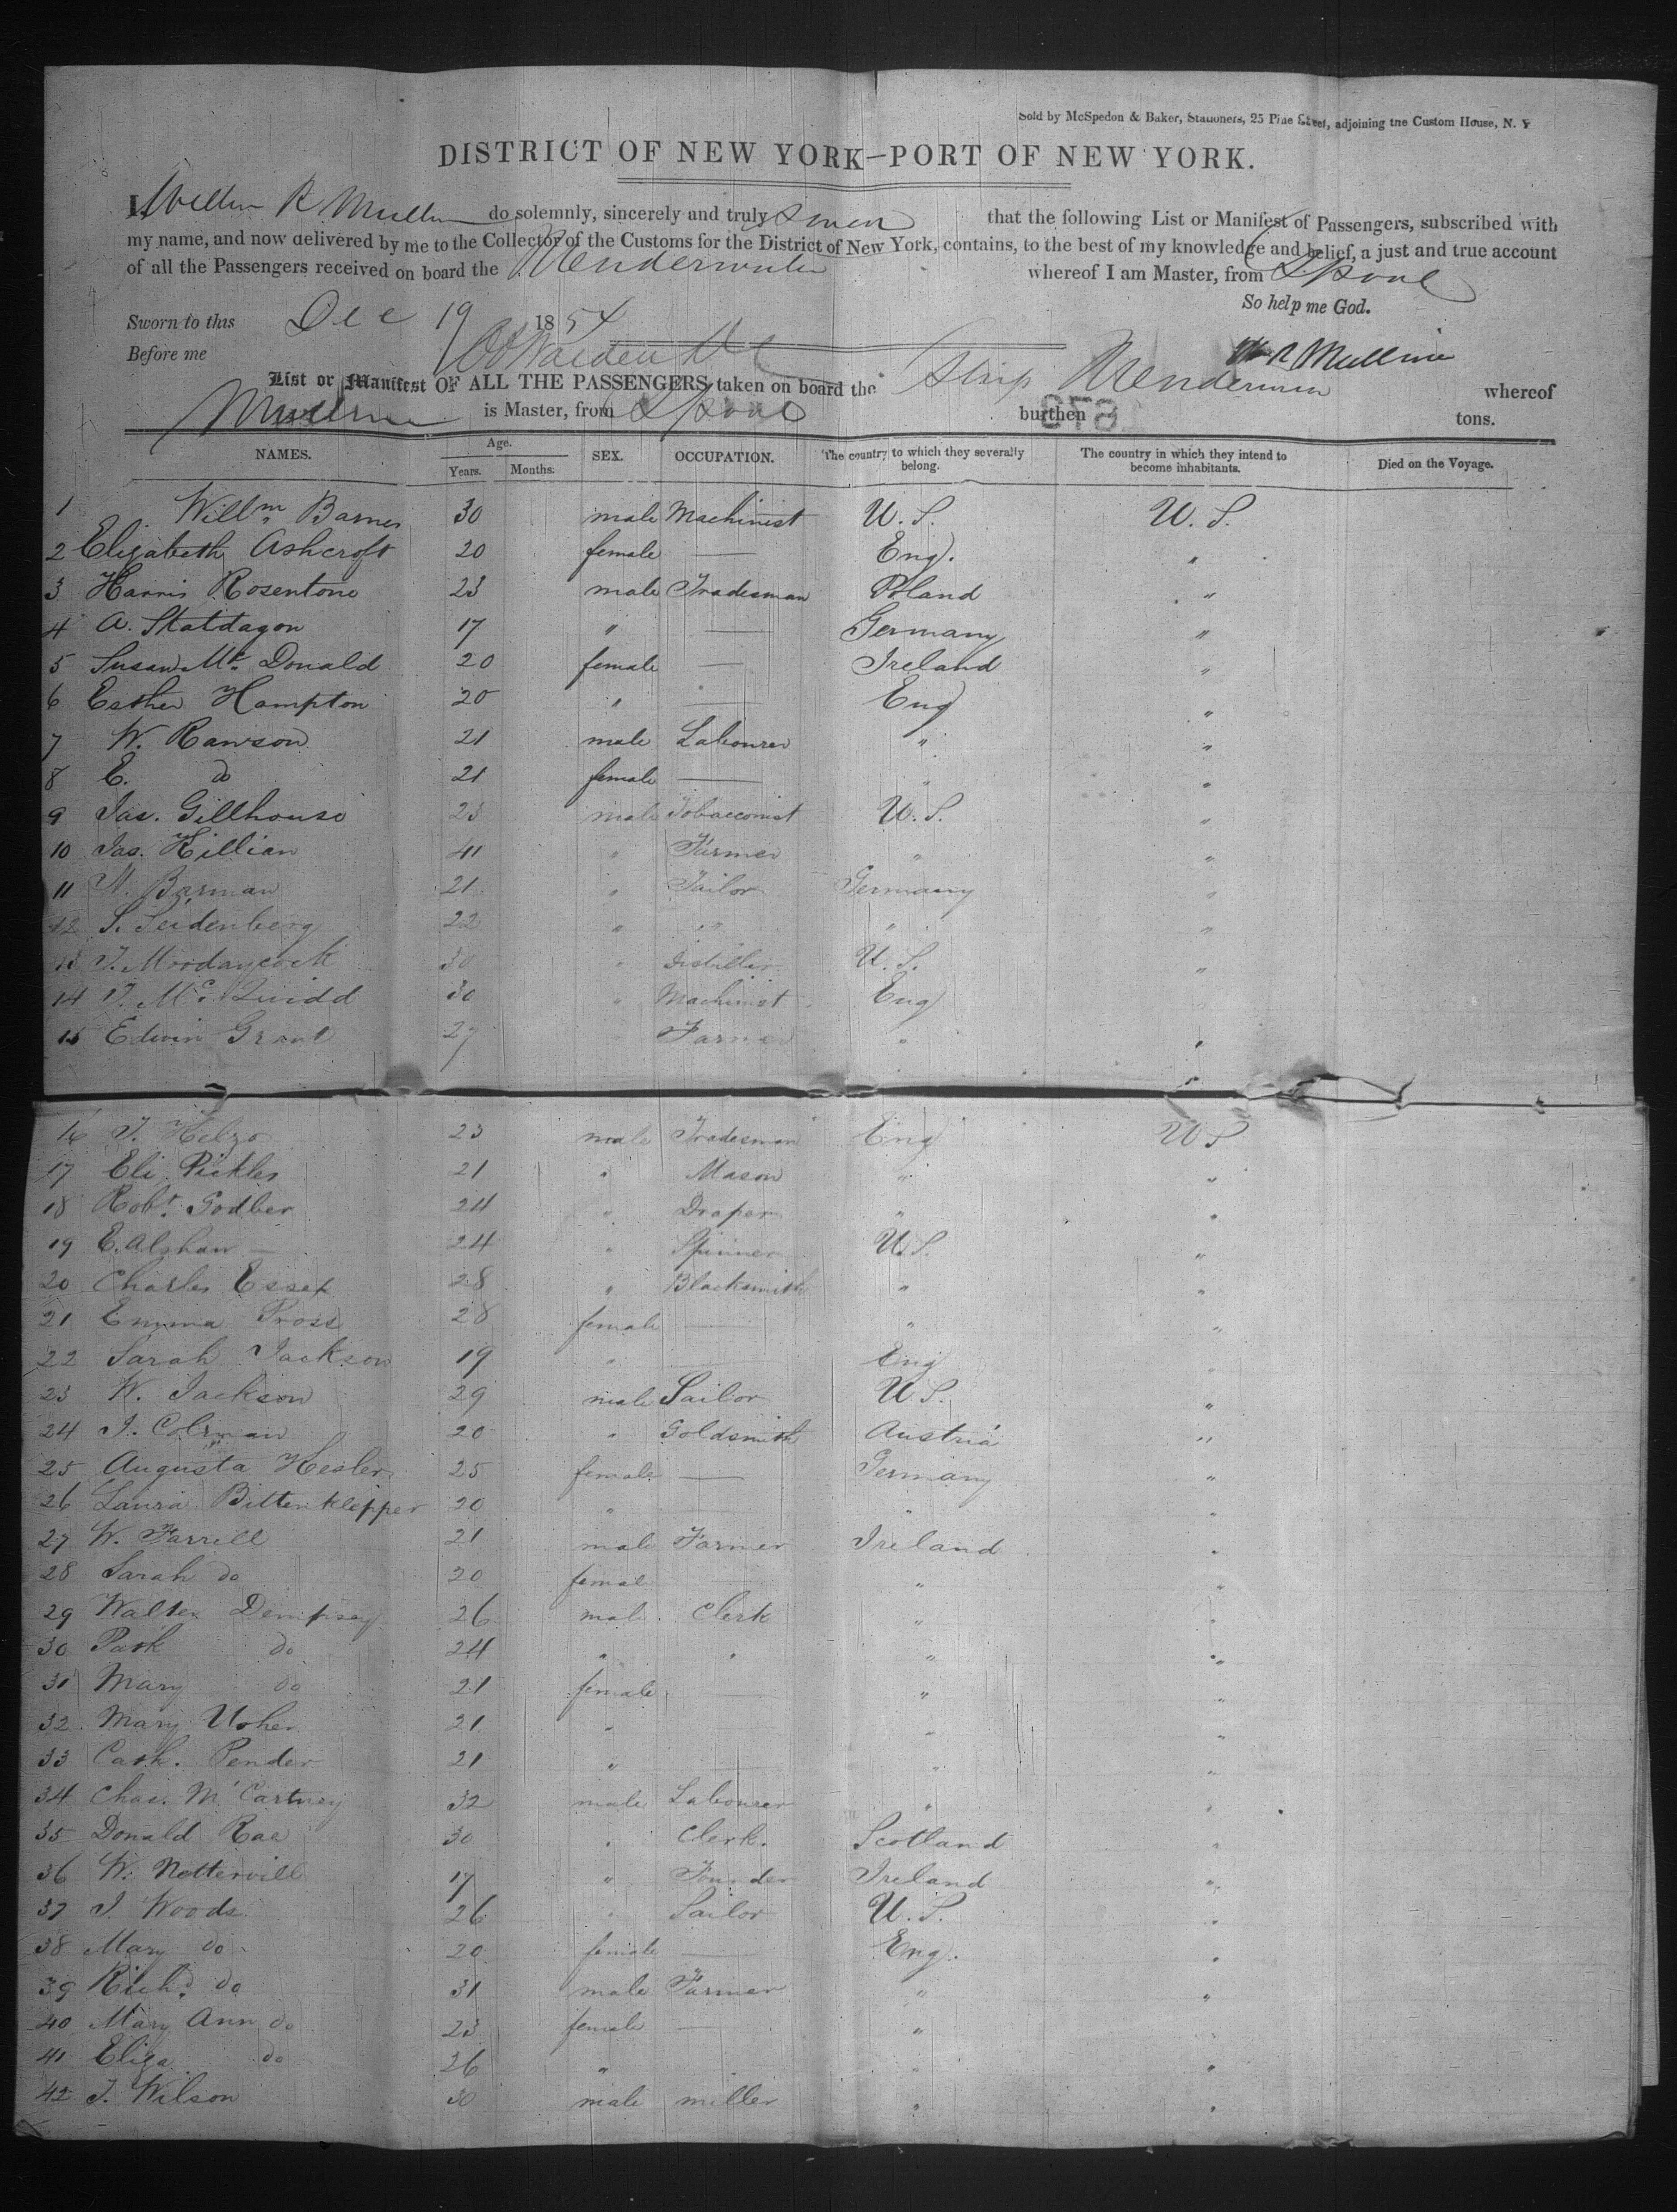 Sold by McSpedon & Baker, Stationers, 25 Pine Street, adjoining the Custom House, N. Y
DISTRICT OF NEW YORK—PORT OF NEW YORK.
I, do solemnly, sincerely and truly that the following List or Manifest of Passengers, subscribed with
my name, and now delivered by me to the Collector of the Customs for the District of New York, contains, to the best of my knowledge and belief, a just and true account
of all the Passengers received on board the whereof I am Master, from L'pool
So help me God.
Sworn to this Dec 19 1854
Before me
Wm R Mullin
List or Manifest OF ALL THE PASSENGERS taken on board the Ship whereof
is Master, from L'pool burthen 675 tons.
NAMES. Age. Years. Months. SEX. OCCUPATION. The country to which they severally belong. The country in which they intend to become inhabitants. Died on the Voyage.
1 Willm Barnes 30 male Machinist U.S. U.S.
2 Elizabeth Ashcroft 20 female — Eng. "
3 Harris Rosentone 23 male Tradesman Poland "
4 A. Skatdagon 17 " — Germany "
5 Susan Mc Donald 20 female — Ireland "
6 Esther Hampton 20 " — Eng "
7 W. Rawson 21 male Labourer " "
8 E. do 21 female — " "
9 Jas. Gillhouse 23 male Tobacconist U.S. "
10 Jas. Killian 41 " Farmer " "
11 N. Barman 21 " Tailor Germany "
12 S. Seidenberg 22 " " " "
13 J. Moodaycock 30 " Distiller U.S. "
14 J. Mc Quidd 30 " Machinist Eng "
15 Edwin Grant 27 " Farmer " "
16 J. Kelzo 23 male Tradesman Eng U S
17 Eli Pickles 21 " Mason " "
18 Robt. Godber 24 " Draper " "
19 E. Alshaw 24 " Spinner U.S. "
20 Charles Essex 28 " Blacksmith " "
21 Emma Pross 28 female — " "
22 Sarah Jackson 19 " Eng "
23 W. Jackson 29 male Sailor U.S. "
24 J. Colman 20 " Goldsmith Austria "
25 Augusta Hesler 25 female — Germany "
26 Laura Bittenklepper 20 " — " "
27 W. Farrell 21 male Farmer Ireland "
28 Sarah do 20 female — " "
29 Walter Dempsey 26 male Clerk " "
30 Patk do 24 " " " "
31 Mary do 21 female — " "
32 Mary Usher 21 " — " "
33 Cath. Pender 21 " — " "
34 Chas. M'Cartney 32 male Labourer " "
35 Donald Rae 30 " Clerk. Scotland "
36 W. Netterville 17 " Founder Ireland "
37 J. Woods 26 " Sailor U.S. "
38 Mary do 20 female — Eng. "
39 Richd. do 31 male Farmer " "
40 Mary Ann do 23 female — " "
41 Eliza do 26 " " "
42 J. Wilson 30 male miller " "